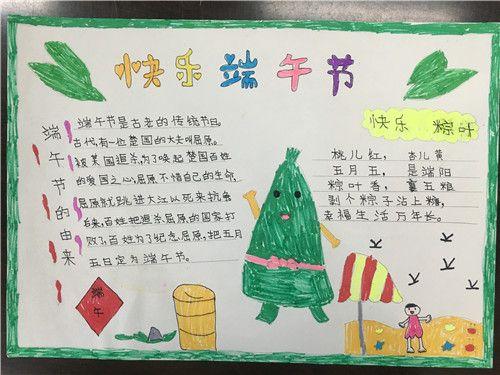 快乐端午节
端午节的由来
端午节是古老的传统节日。
古代,有一位楚国的大夫叫屈原。
被某国追杀,为了唤起楚国百姓
的爱国之心,屈原不惜自己的生命,
屈原就跳进大江以死来抗会
后来,百姓把追杀屈原的国家打
败了,百姓为了纪念屈原,把五月
五日定为端午节。
快乐 粽叶
桃儿红,杏儿黄
五月五,是端阳
粽叶香,裹五粮
剥个粽子沾上糖,
幸福生活万年长。
端午